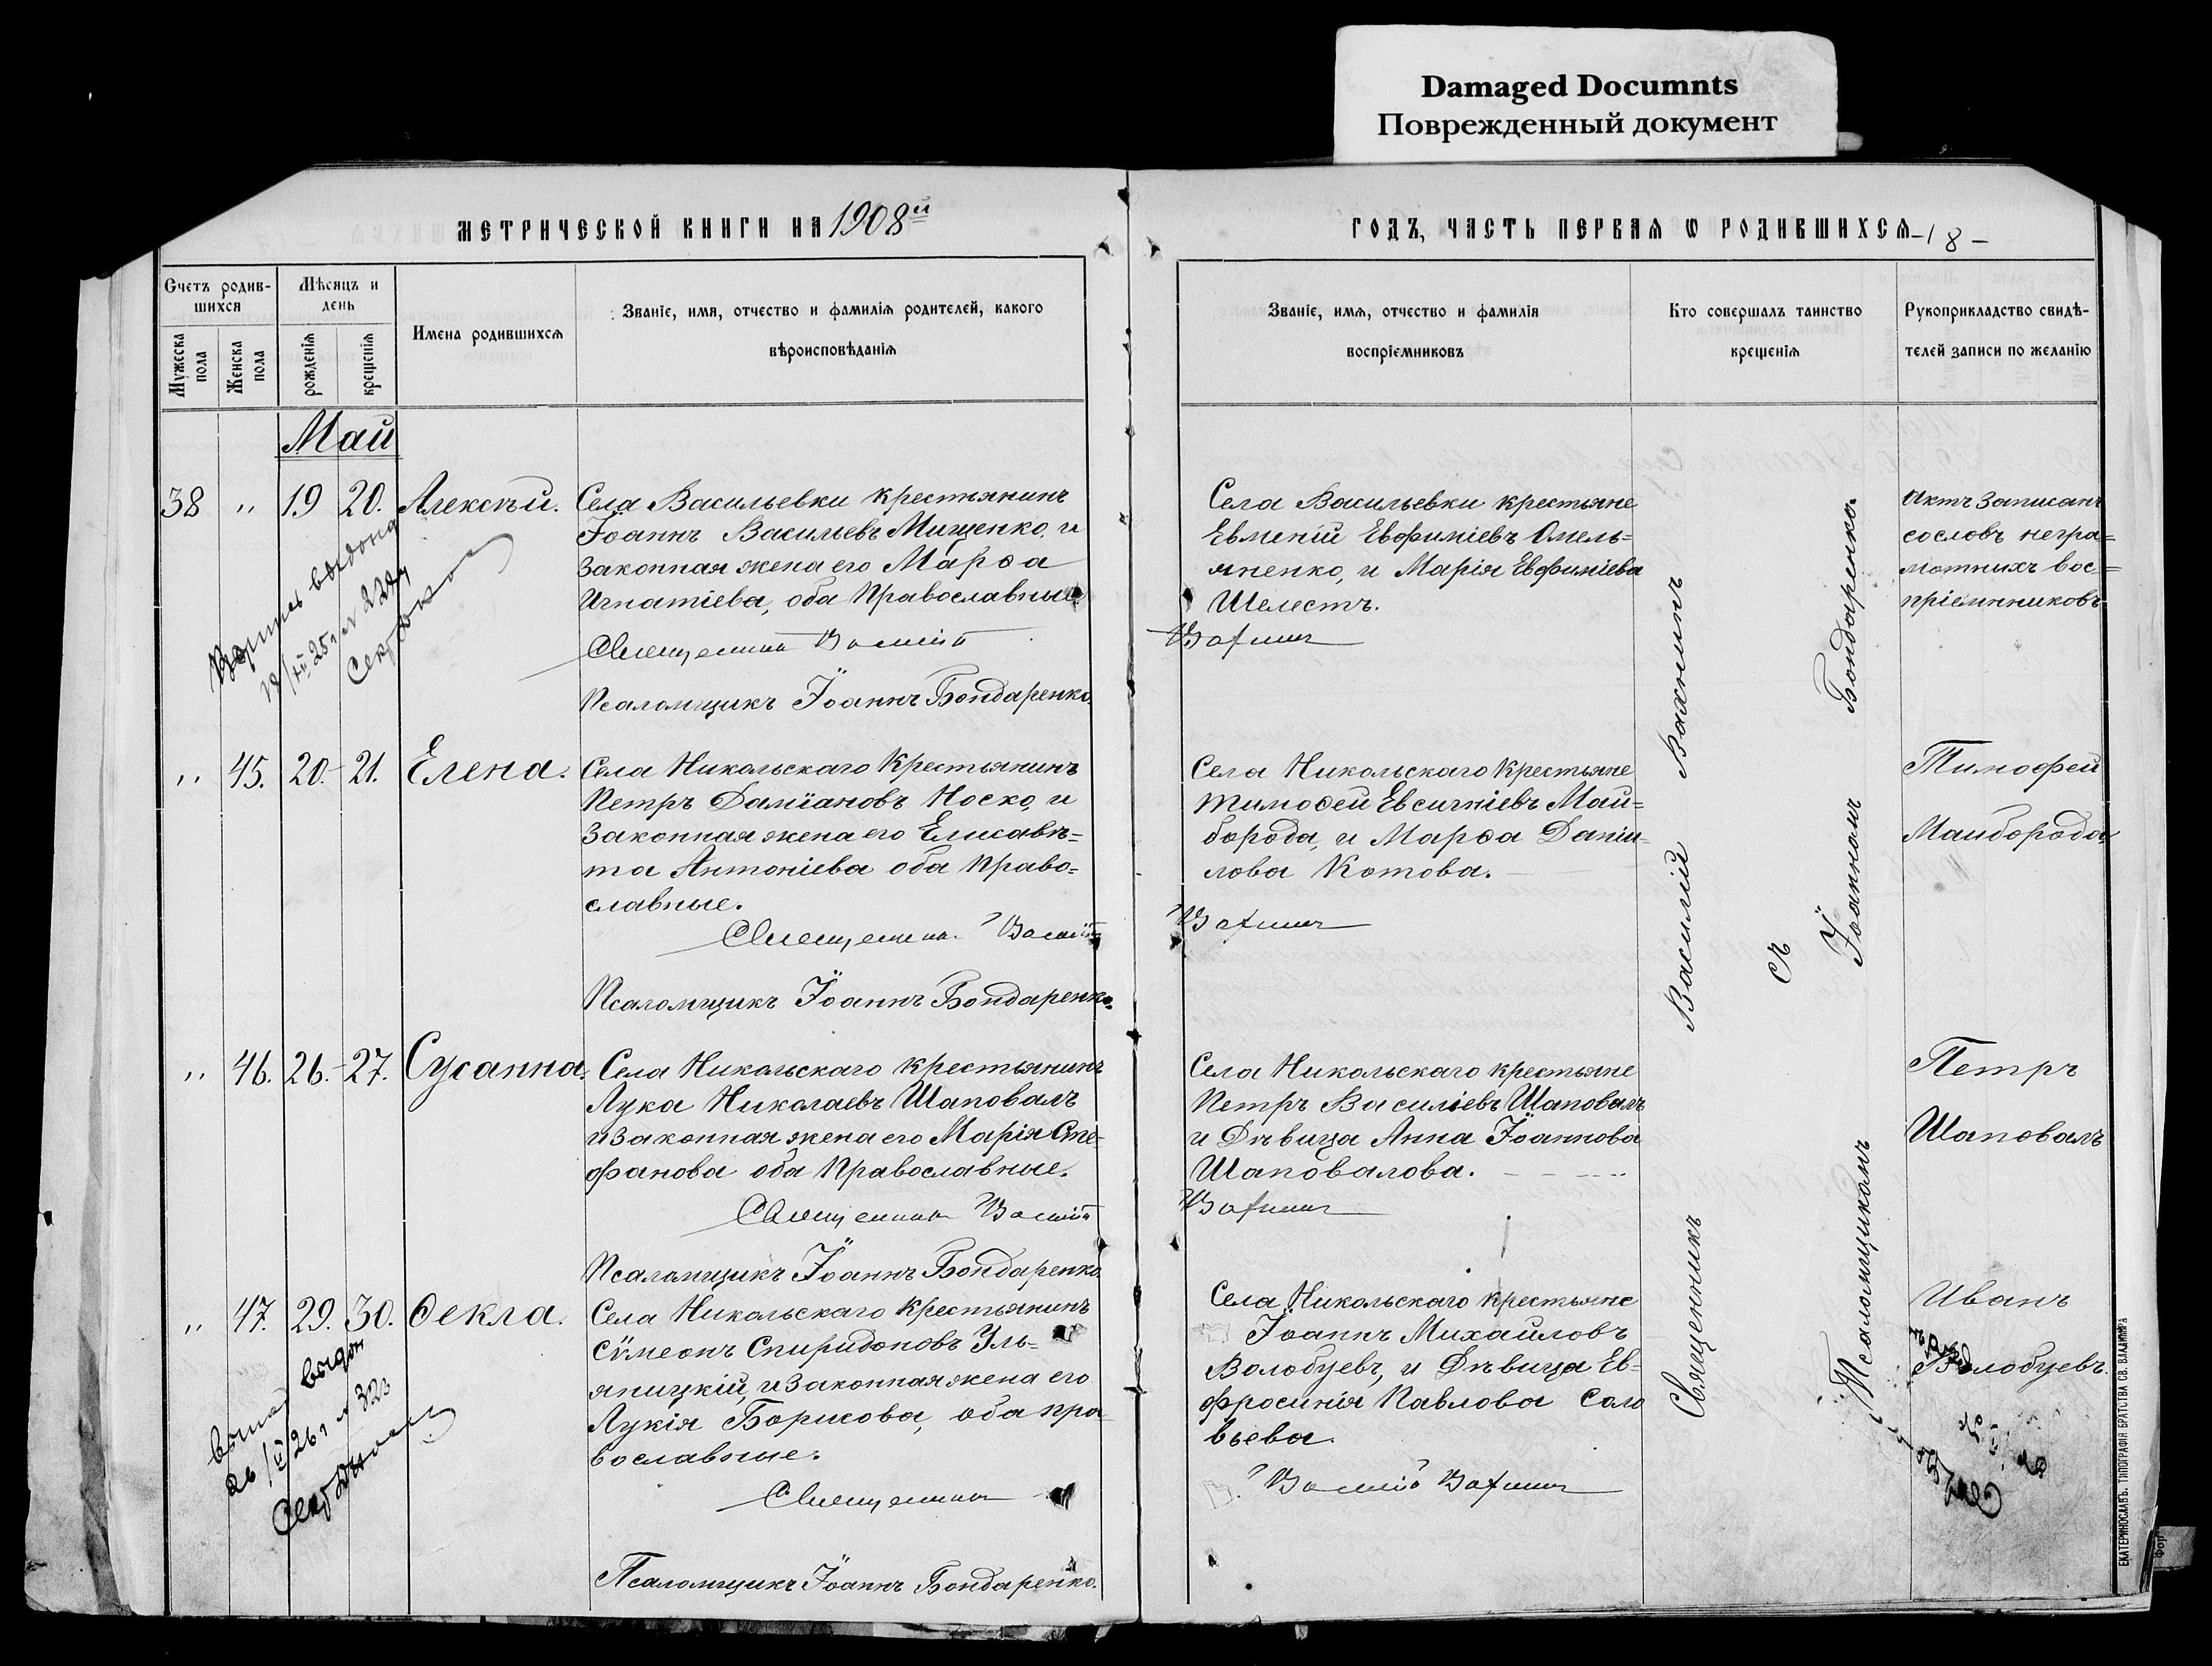 Damaged Documnts
Поврежденный документ
МЕТРИЧЕСКОЙ КНИГИ НА 1908й
ГОДЪ, ЧАСТЬ ПЕРВАЯ Ѡ РОДИВШИХСЯ -18-
Счетъ родив-
шихся
Мужеска
пола
Женска
пола
Мѣсяцъ и
день
рожденія
крещенія
Имена родившихся
Званіе, имя, отчество и фамилія родителей, какого
вѣроисповѣданія
Званіе, имя, отчество и фамилія
воспріемниковъ
Кто совершалъ таинство
крещенія
Рукоприкладство свидѣ-
телей записи по желанію
Май
38 " 19 20. Алексѣй.
Села Васильевки крестьянинъ
Іоаннъ Васильевъ Мищенко, и
законная жена его Марѳа
Игнатіева, оба Православные.
Священникъ Василій
Псаломщикъ Іоаннъ Бондаренко.
Села Васильевки крестьяне
Евменій Евфиміевъ Омель=
яненко, и Марія Евфиміева
Шелестъ.
Вахнинъ
Актъ записанъ
со словъ негра=
мотныхъ вос=
пріемниковъ
" 45. 20.- 21. Елена.
Села Никольскаго Крестьянинъ
Петръ Даміановъ Носко, и
законная жена его Елисаве=
та Антоніева оба право=
славные.
Священникъ Василій
Псаломщикъ Іоаннъ Бондаренко.
Села Никольскаго крестьяне
Тимоѳей Евсигніевъ Май=
борода, и Марѳа Даніи=
лова Котова.
Вахнинъ
Тимофей
Майборода
" 46. 26.- 27. Сусанна.
Села Никольскаго крестьянинъ
Лука Николаевъ Шаповалъ
и законная жена его Марія Сте-
фанова оба Православные.
Священникъ Василій
Псаломщикъ Іоаннъ Бондаренко
Села Никольскаго крестьяне
Петръ Василіевъ Шаповалъ
и Дѣвица Анна Іоаннова
Шаповалова.
Вахнинъ
Петръ
Шаповалъ
" 47. 29. 30. Ѳекла.
Села Никольскаго Крестьянинъ
Сѵмеонъ Спиридоновъ Уль-
яницкій, и законная жена его
Лукія Борисова, оба пра
вославные.
Священникъ
Псаломщикъ Іоаннъ Бондаренко.
Села Никольскаго крестьяне
Іоаннъ Михайловъ
Волобуевъ, и Дѣвица Ев-
фросинія Павлова Соло
вьева.
Василій Вахнинъ
Иванъ
Волобуевъ.
Священникъ Василій Вахнинъ
съ
Псаломщикомъ Іоанномъ Бондаренко.
ЕКАТЕРИНОСЛАВЪ. ТИПОГРАФІЯ БРАТСТВА СВ. ВЛАДИМІРА